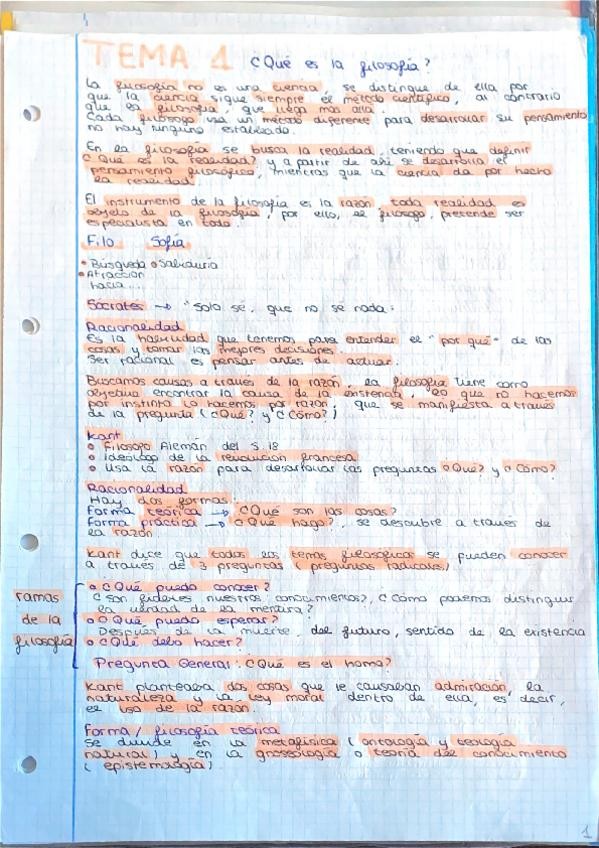 TEMA 1 ¿Qué es la filosofía?
La filosofía no es una ciencia, se distingue de ella por
que la ciencia sigue siempre el método científico, al contrario
que la filosofía, que llega más allá.
Cada filósofo usa un método diferente para desarrollar su pensamiento
no hay ninguno establecido.
En la filosofía se busca la realidad, teniendo que definir
¿Qué es la realidad? y a partir de ahí se desarrolla el
pensamiento filosófico, mientras que la ciencia da por hecho
la realidad.
El instrumento de la filosofía es la razón, toda realidad es
objeto de la filosofía, por ello, el filósofo, pretende ser
especialista en todo.
Filo Sofía
• Búsqueda • Sabiduría
• Atracción
hacia...
Sócrates → "Solo sé, que no sé nada.
Racionalidad
Es la habilidad que tenemos para entender el "por qué" de las
cosas y tomar las mejores decisiones.
Ser racional es pensar antes de actuar.
Buscamos causas a través de la razón, la filosofía tiene como
objetivo encontrar la causa de la existencia, lo que no hacemos
por instinto lo hacemos por razón, que se manifiesta a través
de la pregunta (¿Qué? y ¿Cómo?)
Kant
• Filósofo Alemán del S.18
• Ideólogo de la revolución francesa
• Usa la razón para desarrollar las preguntas ¿Qué? y ¿Cómo?
Racionalidad
Hay dos formas:
Forma teórica → ¿Qué son las cosas?
Forma práctica → ¿Qué hago?, se descubre a través de
la razón.
Kant dice que todos los temas filosóficos se pueden conocer
a través de 3 preguntas (preguntas radicales)
ramas
de la
filosofía
• ¿Qué puedo conocer?
¿Son fiables nuestros conocimientos?, ¿Cómo podemos distinguir
la verdad de la mentira?
• ¿Qué puedo esperar?
Después de la muerte, del futuro, sentido de la existencia
• ¿Qué debo hacer?
Pregunta General: ¿Qué es el homo?
Kant planteaba dos cosas que le causaban admiración, la
naturaleza y la ley moral dentro de ella, es decir,
el uso de la razón.
Forma / filosofía teórica
Se divide en la metafísica (ontología y teología
natural) y en la gnoseología o teoría del conocimiento
(epistemología).
1